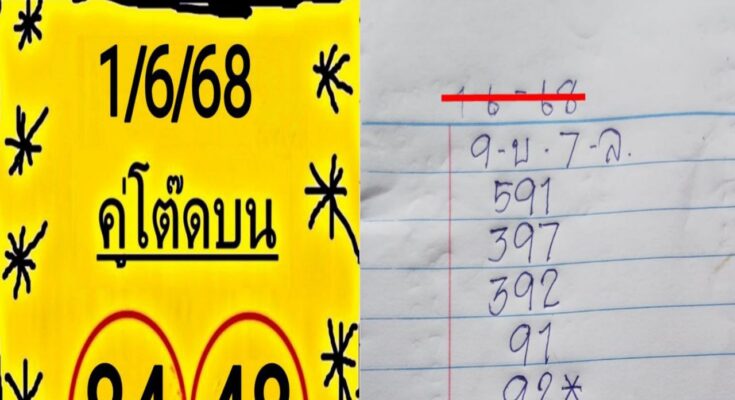 1/6/68
คู่โต๊ดบน
1-6-68
9-บ.7-ล.
591
397
392
91
92*